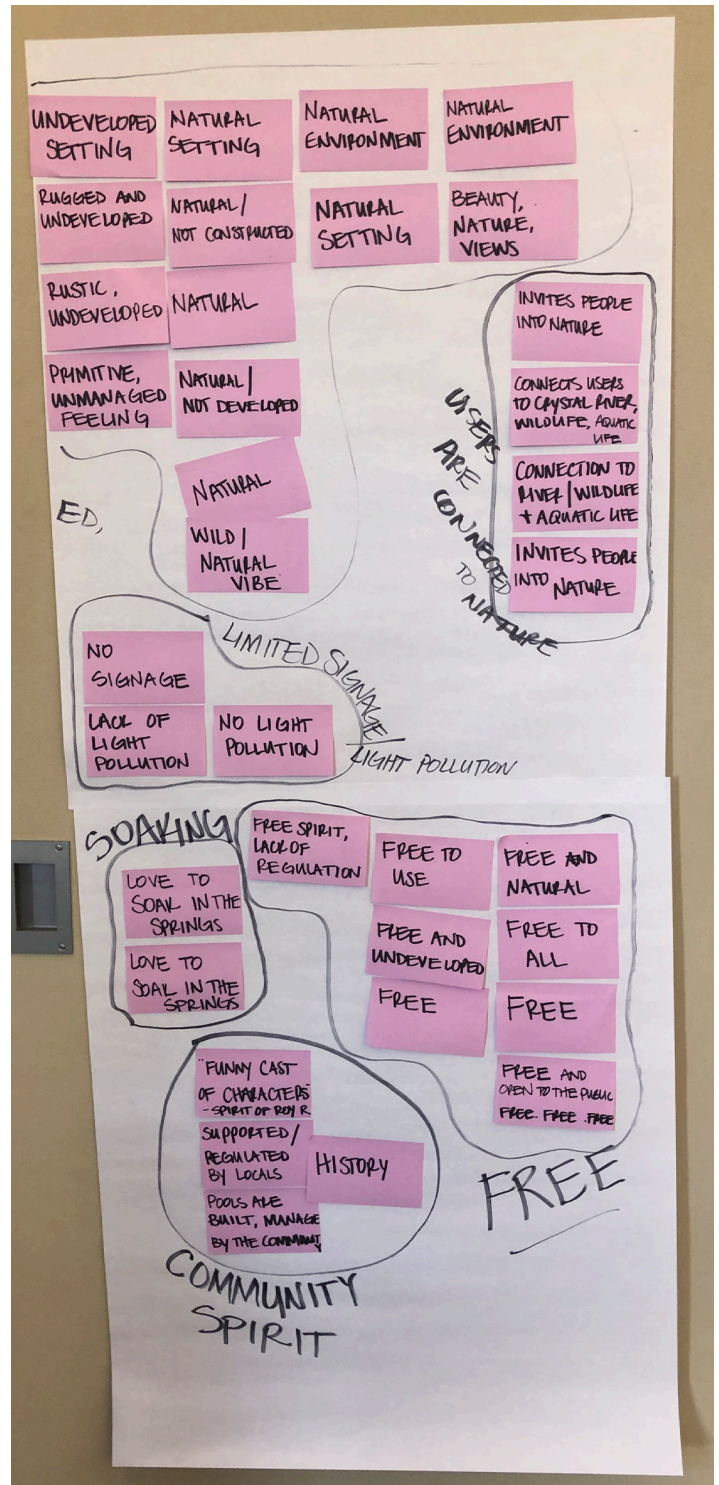 UNDEVELOPED
SETTING
NATURAL
SETTING
NATURAL
ENVIRONMENT
NATURAL
ENVIRONMENT
RUGGED AND
UNDEVELOPED
NATURAL/
NOT CONSTRUCTED
NATURAL
SETTING
BEAUTY,
NATURE,
VIEWS
RUSTIC,
UNDEVELOPED
NATURAL
PRIMITIVE,
UNMANAGED
FEELING
NATURAL/
NOT DEVELOPED
NATURAL
WILD/
NATURAL
VIBE
ED,
INVITES PEOPLE
INTO NATURE
CONNECTS USERS
TO CRYSTAL RIVER,
WILDLIFE, AQUATIC
LIFE
CONNECTION TO
RIVER/WILDLIFE
+ AQUATIC LIFE
INVITES PEOPLE
INTO NATURE
USERS
ARE
CONNECTED
TO NATURE
NO
SIGNAGE
LACK OF
LIGHT
POLLUTION
NO LIGHT
POLLUTION
LIMITED SIGNAGE/
LIGHT POLLUTION
SOAKING
LOVE TO
SOAK IN THE
SPRINGS
LOVE TO
SOAK IN THE
SPRINGS
FREE SPIRIT,
LACK OF
REGULATION
FREE TO
USE
FREE AND
NATURAL
FREE AND
UNDEVELOPED
FREE TO
ALL
FREE
FREE
FREE AND
OPEN TO THE PUBLIC
FREE. FREE. FREE
FREE
"FUNNY CAST
OF CHARACTERS"
-SPIRIT OF ROY R.
SUPPORTED/
REGULATED
BY LOCALS
HISTORY
POOLS ARE
BUILT, MANAGE
BY THE COMMUNITY
COMMUNITY
SPIRIT